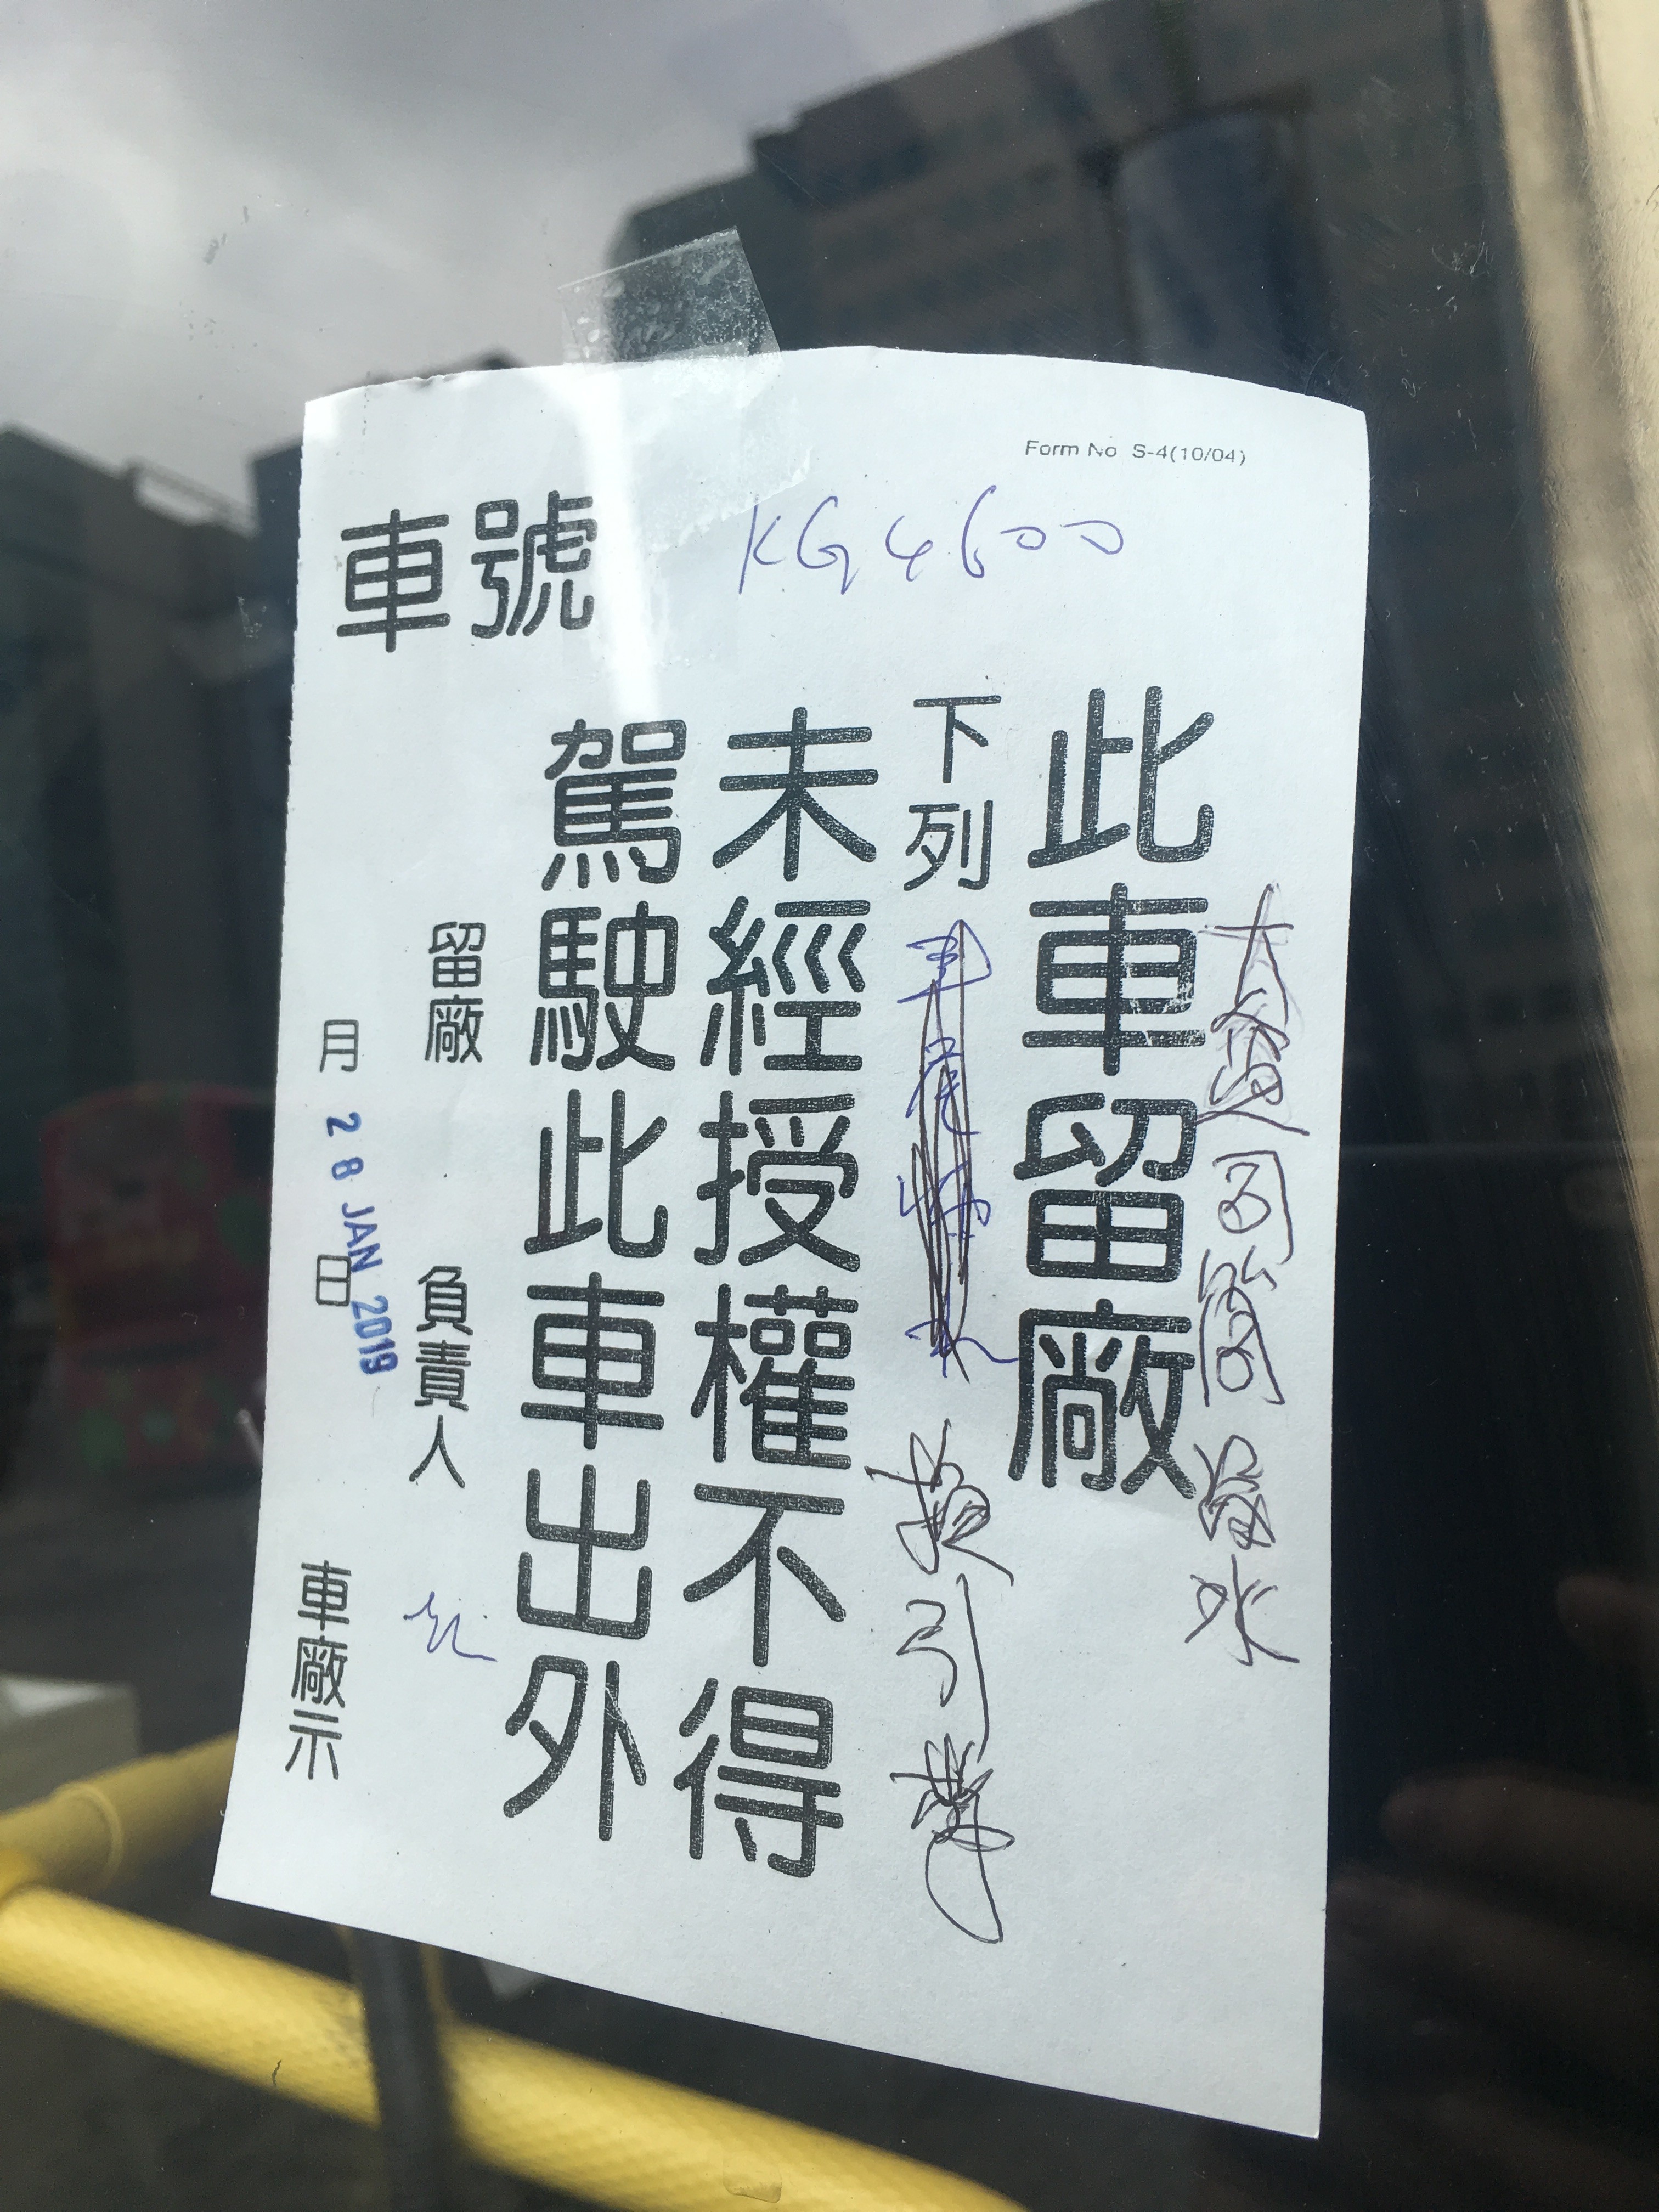 Form No S-4(10/04)
車號 KG4600
此車留廠
下列 換引擎
未經授權不得
駕駛此車出外
留廠 負責人
月 28 JAN 2019 日 車廠示